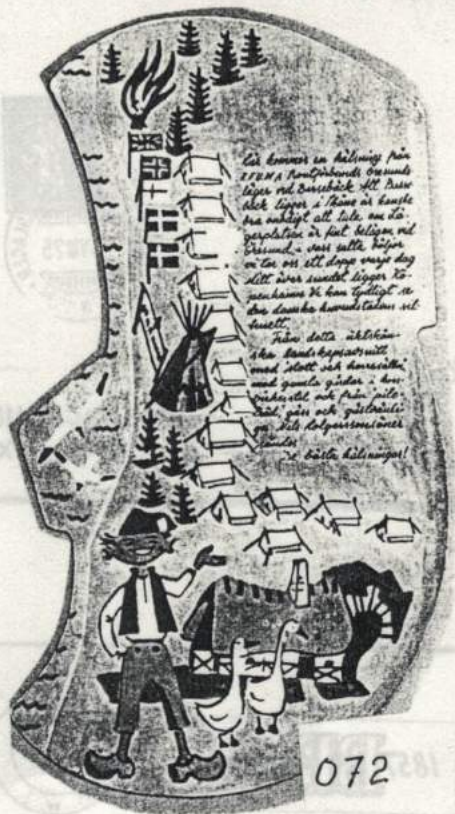 Här kommer en hälsning från
KFUMs Scoutförbunds Öresunds
läger vid Barsebäck. Att Barse
bäck ligger i Skåne är kanske
bra onödigt att tala om. Lä
gerplatsen är fint belägen vid
Öresund, i vars salta böljor
vi tar oss ett dopp varje dag
Mitt över sundet ligger Kö
penhamn. Vi kan tydligt se
den danska huvudstadens sil
huett.
Från detta
ska landskapsavsnitt
med slott och herresäten
med gamla gårdar i kors
virkesstil och från pile
träd, gäss och
ga Nils Holgerssons
länder
de bästa hälsningar!
072
185